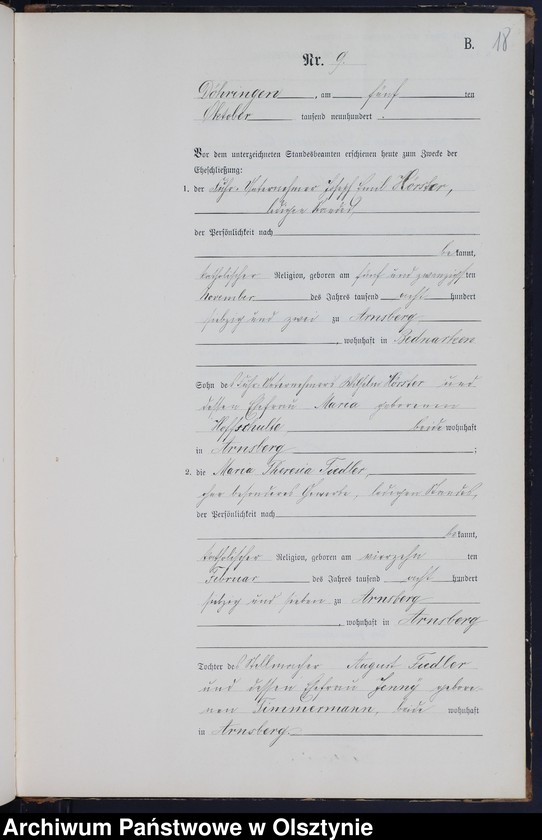 B. 18
Nr. 9
Döhringen, am fünf ten
Oktober tausend neunhundert
Vor dem unterzeichneten Standesbeamten erschienen heute zum Zwecke der
Eheschließung:
1. der Unternehmer Joseph Emil Hörster,
ledigen Standes,
der Persönlichkeit nach
bekannt,
katholischer Religion, geboren am fünf und zwanzigsten
November des Jahres tausend acht hundert
siebzig und zwei zu Arnsberg
, wohnhaft in Bednarken
Sohn des Unternehmers Wilhelm Hörster und
dessen Ehefrau Maria geborenen
Hoffschulte beide wohnhaft
in Arnsberg ;
2. die Maria Theresia Fiedler,
ohne besonderes Gewerbe, ledigen Standes,
der Persönlichkeit nach
bekannt,
katholischer Religion, geboren am vierzehn ten
Februar des Jahres tausend acht hundert
siebzig und sieben zu Arnsberg
, wohnhaft in Arnsberg
Tochter des Stellmacher August Fiedler
und dessen Ehefrau Jenny gebore-
nen Timmermann, beide wohnhaft
in Arnsberg
Archiwum Państwowe w Olsztynie